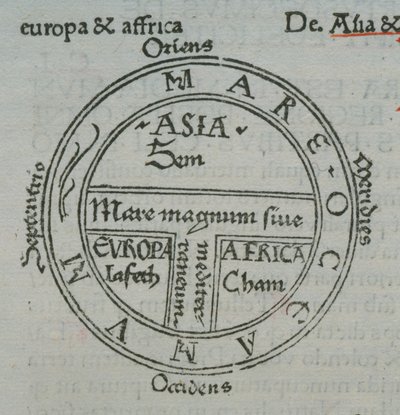 europa & affrica
De. Asia &
Oriens
MARE OCCEANVM
ASIA
Sem
Septentrio
Meridies
Mare magnum sive
mediter
raneum
EVROPA
Iafeth
AFRICA
Cham
Occidens